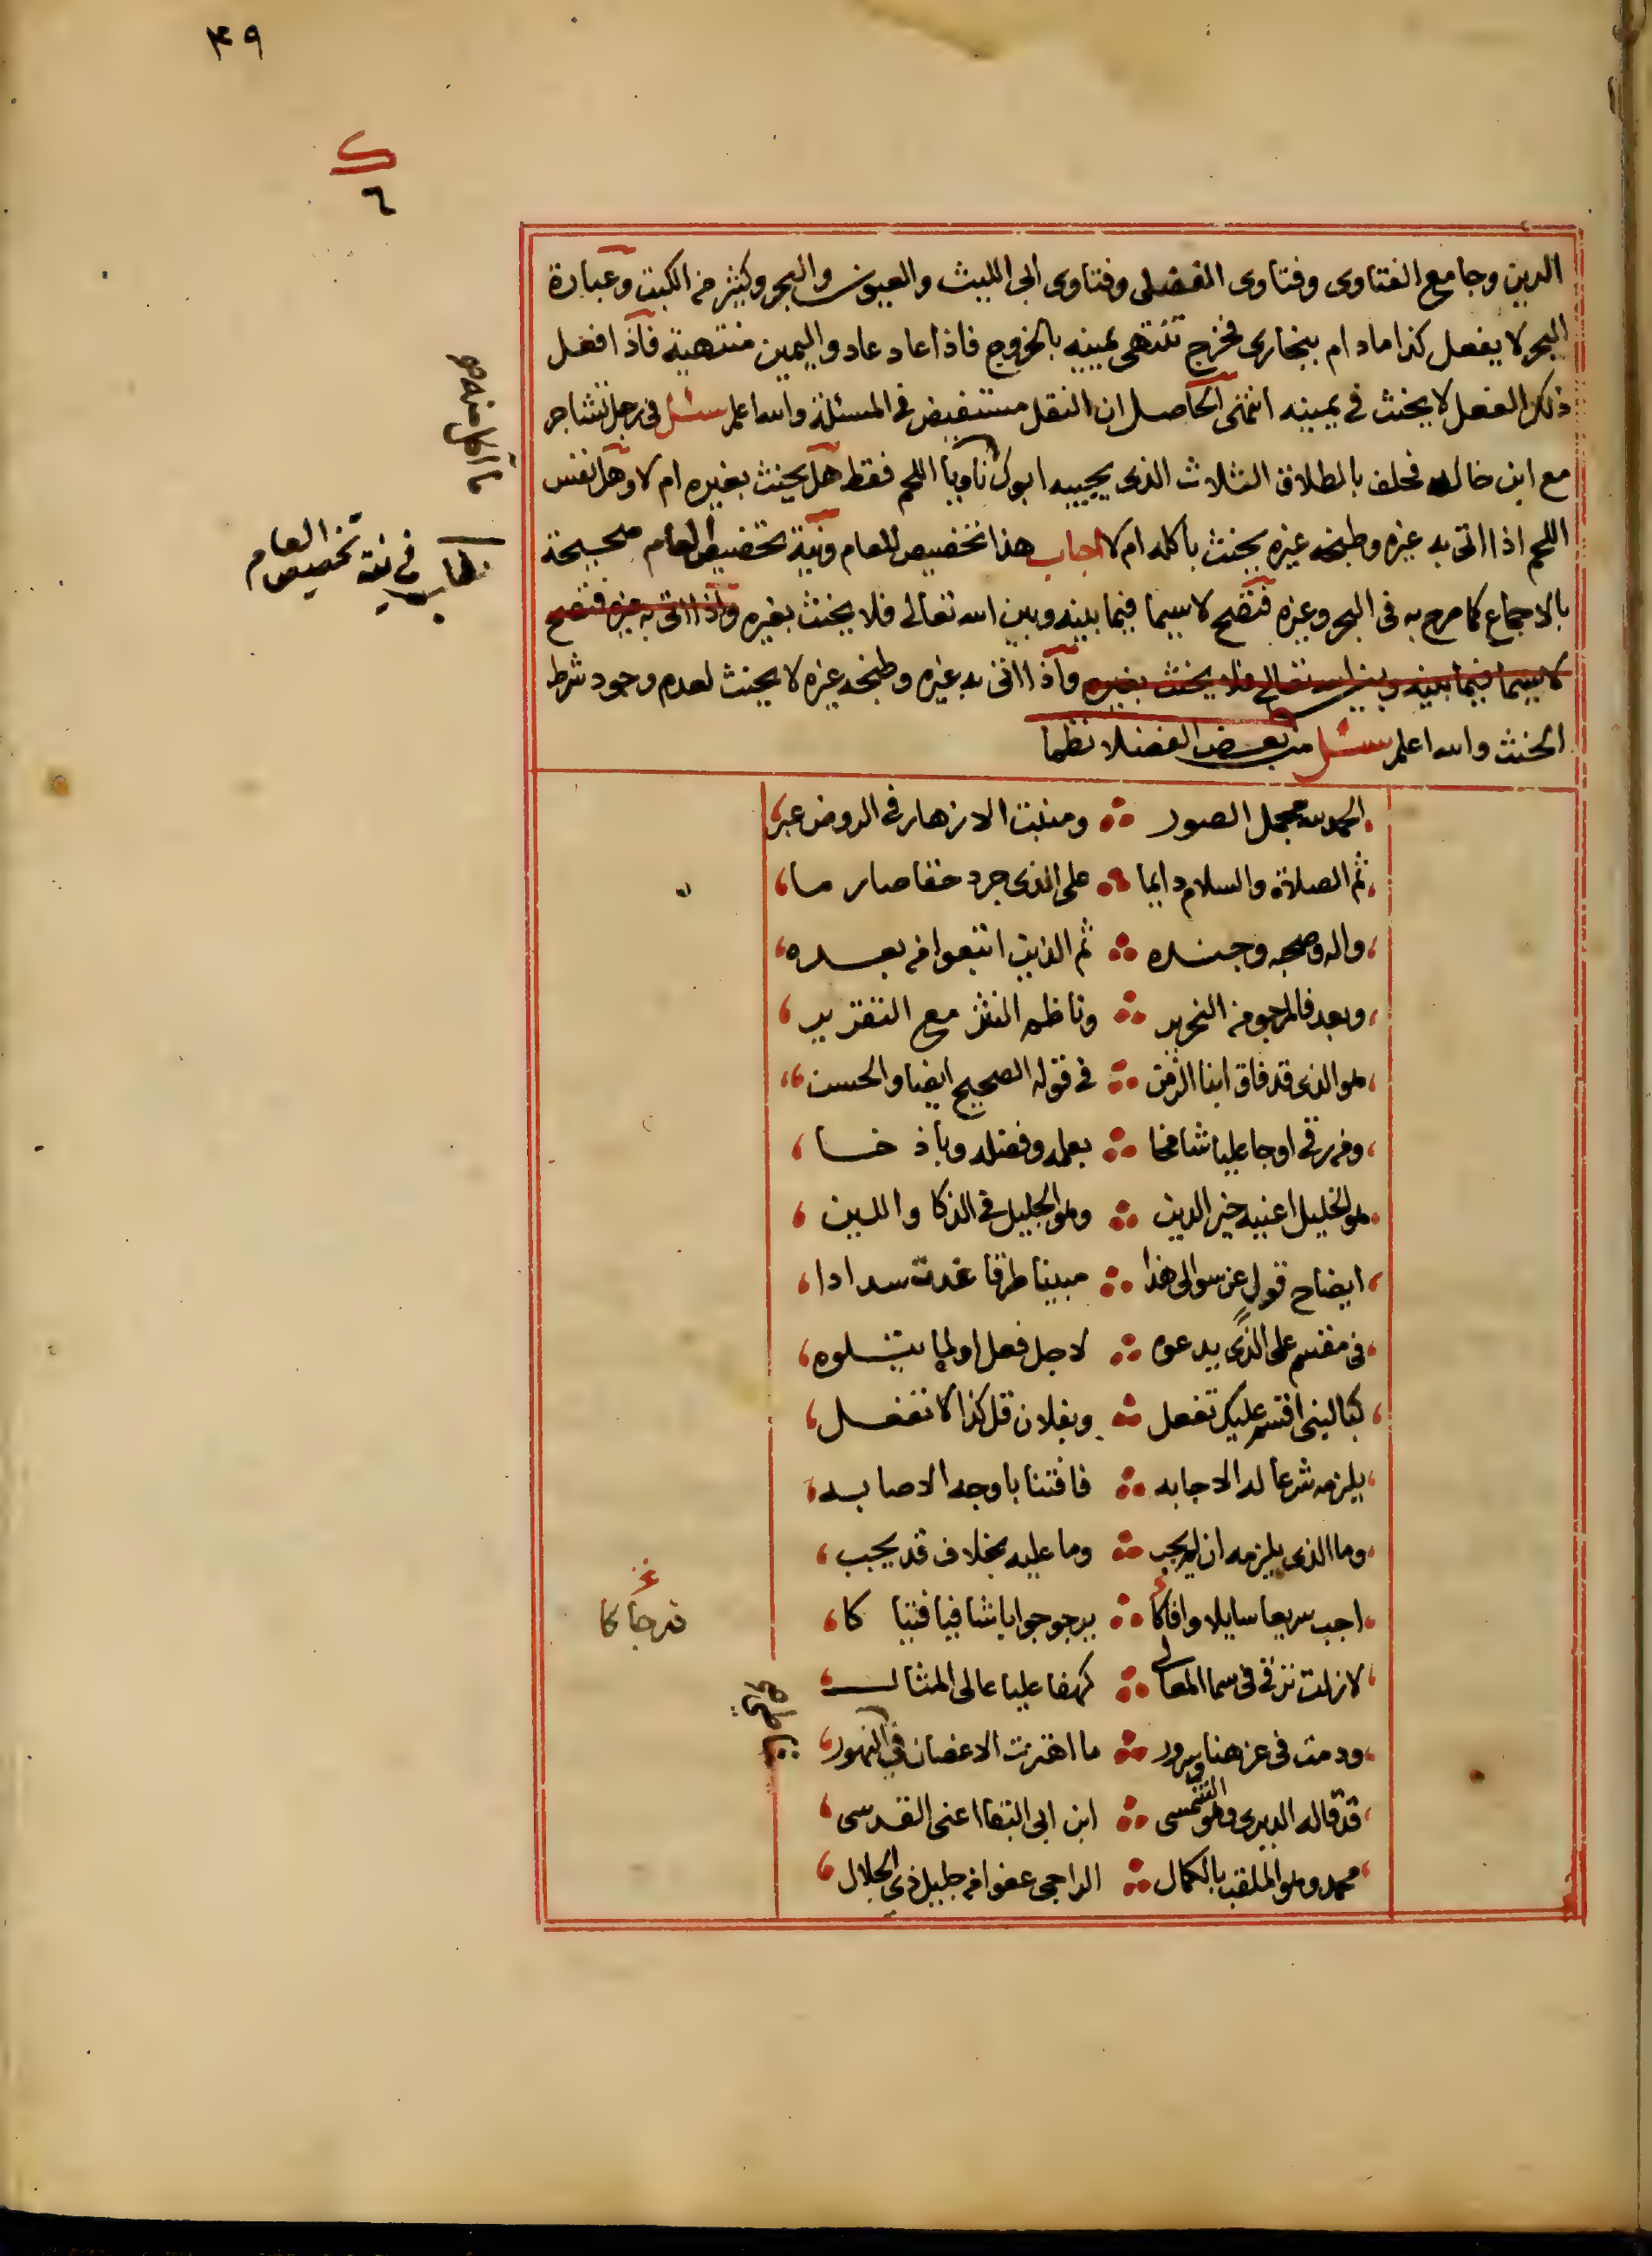 ٤٩
ك
٦
الدين وجامع الفتاوى وفتاوى الفضلى وفتاوى ابى الليث والعيون والبحر وكثير من الكتب وعبارة
البحر لا يفعل كذا مادام ببخارى فخرج تنتهى يمينه بالخروج فاذا عاد عاد واليمين منتهية فاذا فعل
ذلك الفعل لا يحنث فى يمينه انتهى الحاصل ان النقل مستفيض فى المسئلة والله اعلم سئل فى رجل تشاجر
مع ابن خاله فحلف بالطلاق الثلاث الذى يجيبه ابوك ناويا اللحم فقط هل يحنث بغيره ام لا وهل نفس
ما آكل منه صح
اللحم اذا اتى به غيره وطبخه غيره يحنث باكله ام لا اجاب هذا تخصيص للعام ونية تخصيص العام صحيحة
مطلب فى نية تخصيص العام
بالاجماع كما صرح به فى البحر وغيره فتصح لا سيما فيما بينه وبين الله تعالى فلا يحنث بغيره واذا اتى به غيره فتصح
لا سيما فيما بينه وبين الله تعالى فلا يحنث بغيره واذا اتى به غيره وطبخه غيره لا يحنث لعدم وجود شرط
الحنث والله اعلم سئل من بعض الفضلا نظما
الحمد لله مجمل الصور ومنبت الازهار فى الروض عبر
ثم الصلاة والسلام دايما على الذى جرد حقا صارما
واله وصحبه وجنده ثم الذين اتبعوا من بعده
وبعد فالمرجو من النحرير وناظم النثر مع التقرير
هو الذى قد فاق ابنا الزمن فى قوله الصحيح ايضا والحسن
ومن رقى اوجا عليا شامخا بعلمه وفضله وباذخا
هو الخليل اعنيه خير الدين وهو الجليل فى الذكا واللين
ايضاح قول عن سوالى هذا مبينا طرقا غدت سدادا
فى مقسم على الذى يدعوه لاجل فعل او لما يتلوه
كبالنبى اقسم عليك تفعل وبفلان قل كذا لا تفعل
يلزمه شرعا له الاجابه فافتنا باوجه الاصابه
وما الذى يلزمه ان لم يجب وما عليه بخلاف قد يجب
اجب سريعا سايلا وافاكا يرجو جوابا شافيا فتياكا
قد جاكا
لازلت ترقى فى سما المعالى كهفا عليا عالى المثال
ودمت فى عز هنا وسرور ما اهتزت الاغصان فى النهور
قد قاله الديرى وهو الشمسى ابن ابى البقا اعنى القدسى
محمد وهو الملقب بالكمال الراجى عفوا من جليل ذى الجلال